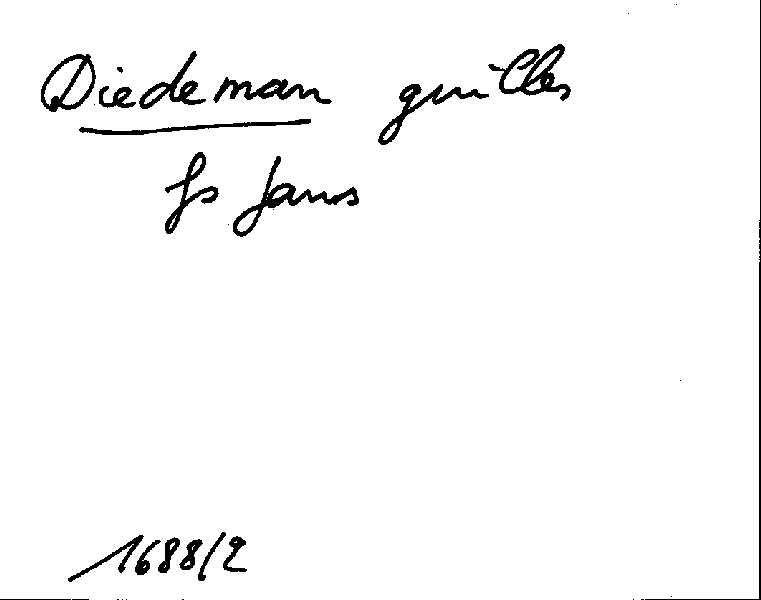 Diedeman guilles
fs Jans
1688/2